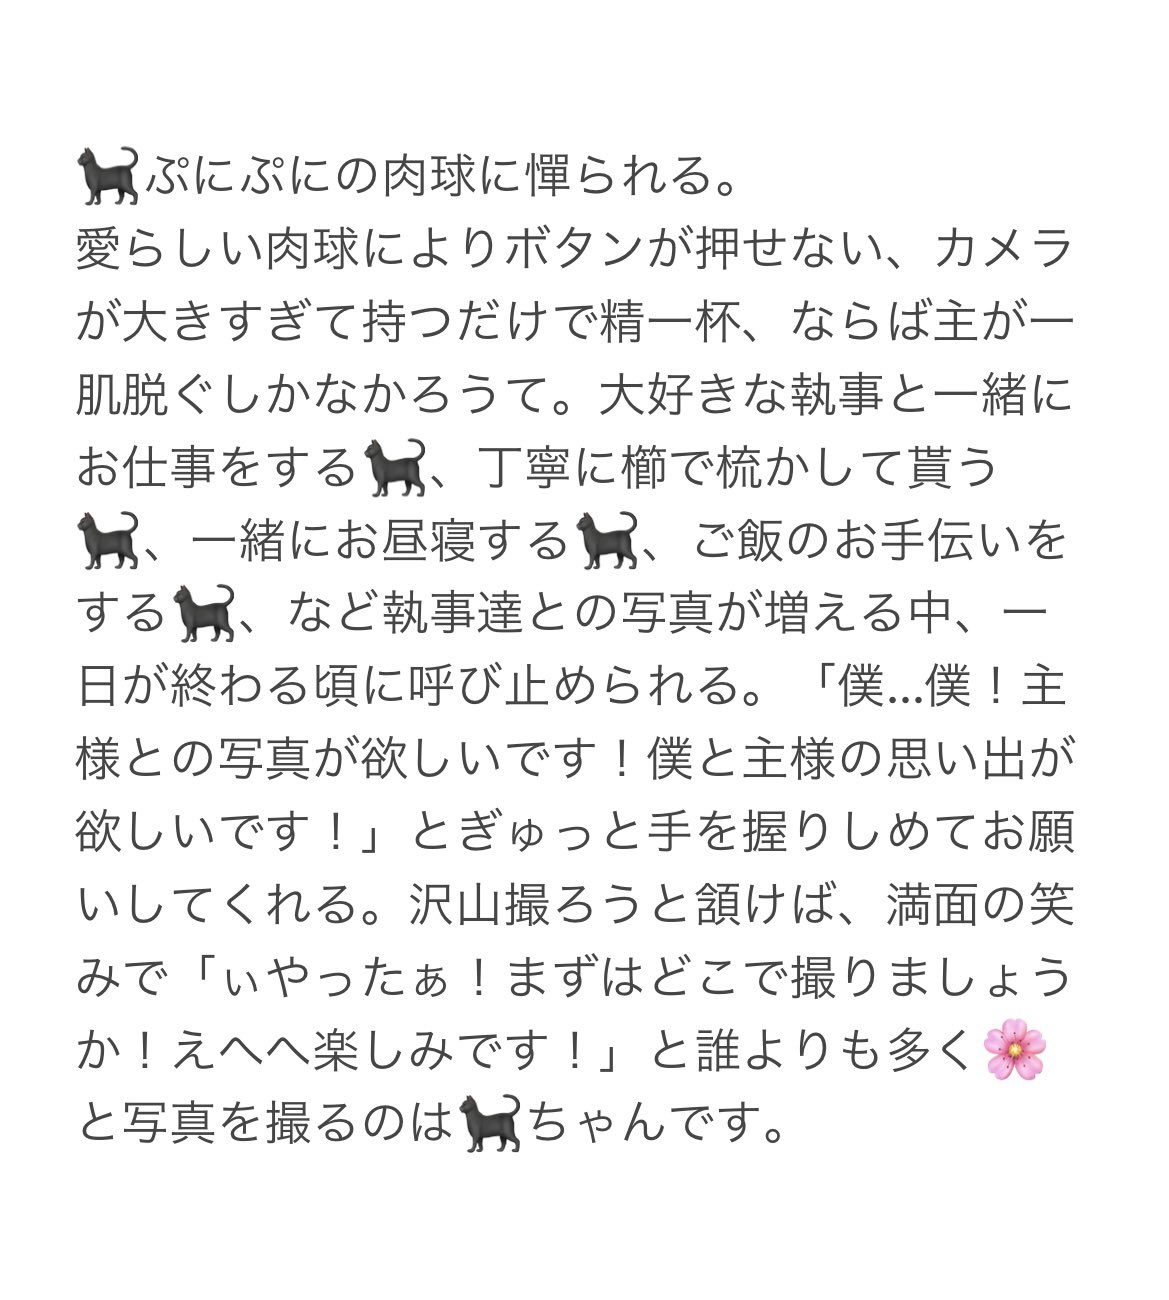 🐈‍⬛ぷにぷにの肉球に憚られる。
愛らしい肉球によりボタンが押せない、カメラ
が大きすぎて持つだけで精一杯、ならば主が一
肌脱ぐしかなかろうて。大好きな執事と一緒に
お仕事をする🐈‍⬛、丁寧に櫛で梳かして貰う
🐈‍⬛、一緒にお昼寝する🐈‍⬛、ご飯のお手伝いを
する🐈‍⬛、など執事達との写真が増える中、一
日が終わる頃に呼び止められる。「僕...僕！主
様との写真が欲しいです！僕と主様の思い出が
欲しいです！」とぎゅっと手を握りしめてお願
いしてくれる。沢山撮ろうと頷けば、満面の笑
みで「ぃやったぁ！まずはどこで撮りましょう
か！えへへ楽しみです！」と誰よりも多く🌸
と写真を撮るのは🐈‍⬛ちゃんです。